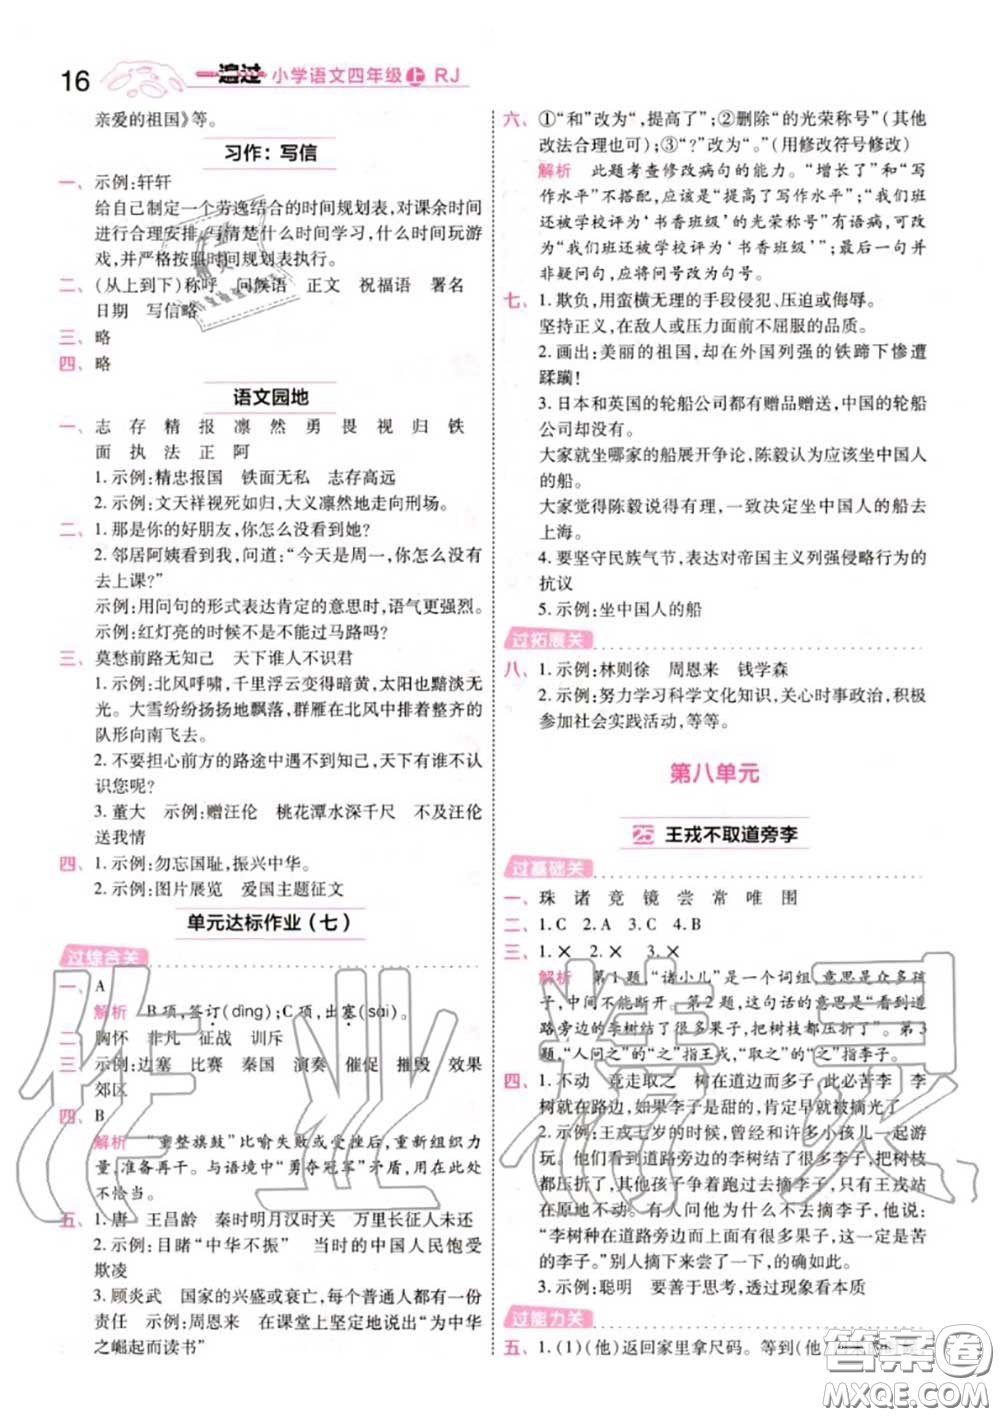 16 一遍过 小学语文四年级上 RJ
亲爱的祖国》等。
习作：写信
一、示例:轩轩
给自己制定一个劳逸结合的时间规划表,对课余时间
进行合理安排,写清楚什么时间学习,什么时间玩游
戏,并严格按照时间规划表执行。
二、(从上到下)称呼 问候语 正文 祝福语 署名
日期 写信略
三、略
四、略
语文园地
一、志 存 精 报 凛 然 勇 畏 视 归 铁
面 执 法 正 阿
1.示例:精忠报国 铁面无私 志存高远
2.示例:文天祥视死如归,大义凛然地走向刑场。
二、1.那是你的好朋友,你怎么没看到她?
2.邻居阿姨看到我,问道:“今天是周一,你怎么没有
去上课?”
示例:用问句的形式表达肯定的意思时,语气更强烈。
示例:红灯亮的时候不是不能过马路吗?
三、莫愁前路无知己 天下谁人不识君
1.示例:北风呼啸,千里浮云变得暗黄,太阳也黯淡无
光。大雪纷纷扬扬地飘落,群雁在北风中排着整齐的
队形向南飞去。
2.不要担心前方的路途中遇不到知己,天下谁不认
识您呢?
3.董大 示例:赠汪伦 桃花潭水深千尺 不及汪伦
送我情
四、1.示例:勿忘国耻,振兴中华。
2.示例:图片展览 爱国主题征文
单元达标作业（七）
过综合关
一、A
解析 B项,签订(dìng);C项,出塞(sài)。
二、胸怀 非凡 征战 训斥
三、示例:边塞 比赛 秦国 演奏 催促 摧毁 效果
郊区
四、B
解析 “重整旗鼓”比喻失败或受挫后,重新组织力
量,准备再干。与语境中“勇夺冠军”矛盾,用在此处
不恰当。
五、1.唐 王昌龄 秦时明月汉时关 万里长征人未还
2.示例:目睹“中华不振” 当时的中国人民饱受
欺凌
3.顾炎武 国家的兴盛或衰亡,每个普通人都有一份
责任 示例:周恩来 在课堂上坚定地说出“为中华
之崛起而读书”
六、①“和”改为“,提高了”;②删除“的光荣称号”(其他
改法合理也可);③“?”改为“。”(用修改符号修改)
解析 此题考查修改病句的能力。“增长了”和“写
作水平”不搭配,应该是“提高了写作水平”;“我们班
还被学校评为‘书香班级’的光荣称号”有语病,可改
为“我们班还被学校评为‘书香班级’”;最后一句并
非疑问句,应将问号改为句号。
七、1.欺负,用蛮横无理的手段侵犯、压迫或侮辱。
坚持正义,在敌人或压力面前不屈服的品质。
2.画出:美丽的祖国,却在外国列强的铁蹄下惨遭
蹂躏!
3.日本和英国的轮船公司都有赠品赠送,中国的轮船
公司却没有。
大家就坐哪家的船展开争论,陈毅认为应该坐中国人
的船。
大家觉得陈毅说得有理,一致决定坐中国人的船去
上海。
4.要坚守民族气节,表达对帝国主义列强侵略行为的
抗议
5.示例:坐中国人的船
过拓展关
八、1.示例:林则徐 周恩来 钱学森
2.示例:努力学习科学文化知识,关心时事政治,积极
参加社会实践活动,等等。
第八单元
25 王戎不取道旁李
过基础关
一、珠 诸 竞 镜 尝 常 唯 围
二、1.C 2.A 3.C
三、1.× 2.× 3.×
解析 第1题,“诸小儿”是一个词组,意思是众多孩
子,中间不能断开。第2题,这句话的意思是“看到道
路旁边的李树结了很多果子,把树枝都压折了”。第3
题,“人问之”的“之”指王戎,“取之”的“之”指李子。
四、1.不动 竞走取之 树在道边而多子,此必苦李 李
树就在路边,如果李子是甜的,肯定早就被摘光了
2.示例:王戎七岁的时候,曾经和许多小孩儿一起游
玩。他们看到道路旁边的李树结了很多果子,把树枝
都压折了。其他人都竞相跑过去摘李子,只有王戎站
在原地不动。有人问他为什么不去摘李子,他说:
“李树种在道路旁边而且有很多果子,这一定是苦
的李子。”别人摘下来尝了一下,的确如此。
3.示例:聪明 要善于思考,透过现象看本质
过能力关
五、1.(1)(他)返回家里拿尺码。等到(他)
作业精灵
答案圈
MXQE.COM